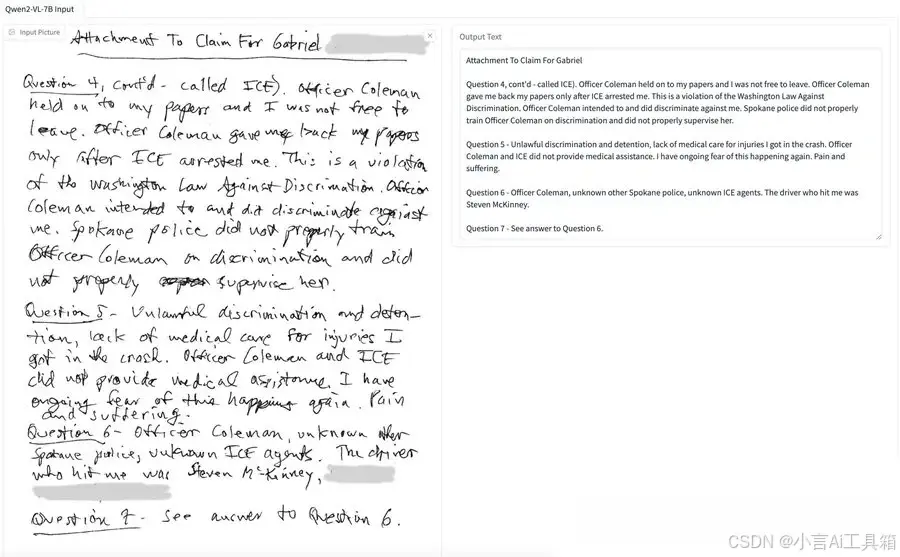 Qwen2-VL-7B Input
Input Picture
Attachment To Claim For Gabriel
Question 4, cont'd - called ICE). Officer Coleman
held on to my papers and I was not free to
leave. Officer Coleman gave me back my papers
only after ICE arrested me. This is a violation
of the Washington Law Against Discrimination. Officer
Coleman intended to and did discriminate against
me. Spokane police did not properly train
Officer Coleman on discrimination and did
not properly supervise her.
Question 5 - Unlawful discrimination and deten-
tion, lack of medical care for injuries I
got in the crash. Officer Coleman and ICE
did not provide medical assistance. I have
ongoing fear of this happening again. Pain
and suffering.
Question 6 - Officer Coleman, unknown other
Spokane police, unknown ICE agents. The driver
who hit me was Steven McKinney,
Question 7 - See answer to Question 6.
Output Text
Attachment To Claim For Gabriel
Question 4, con't'd - called ICE). Officer Coleman held on to my papers and I was not free to leave. Officer Coleman
gave me back my papers only after ICE arrested me. This is a violation of the Washington Law Against
Discrimination. Officer Coleman intended to and did discriminate against me. Spokane police did not properly
train Officer Coleman on discrimination and did not properly supervise her.
Question 5 - Unlawful discrimination and detention, lack of medical care for injuries I got in the crash. Officer
Coleman and ICE did not provide medical assistance. I have ongoing fear of this happening again. Pain and
suffering.
Question 6 - Officer Coleman, unknown other Spokane police, unknown ICE agents. The driver who hit me was
Steven McKinney.
Question 7 - See answer to Question 6.
CSDN @小言Ai工具箱